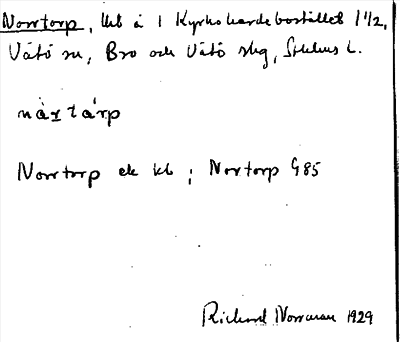 Norrtorp, lht å 1 Kyrkoherdebostället 1 1/2,
Vätö sn, Bro och Vätö skg, Sthlms L.
nàrtárp
Norrtorp ek kb; Norrtorp G85
Richard Norrman 1929